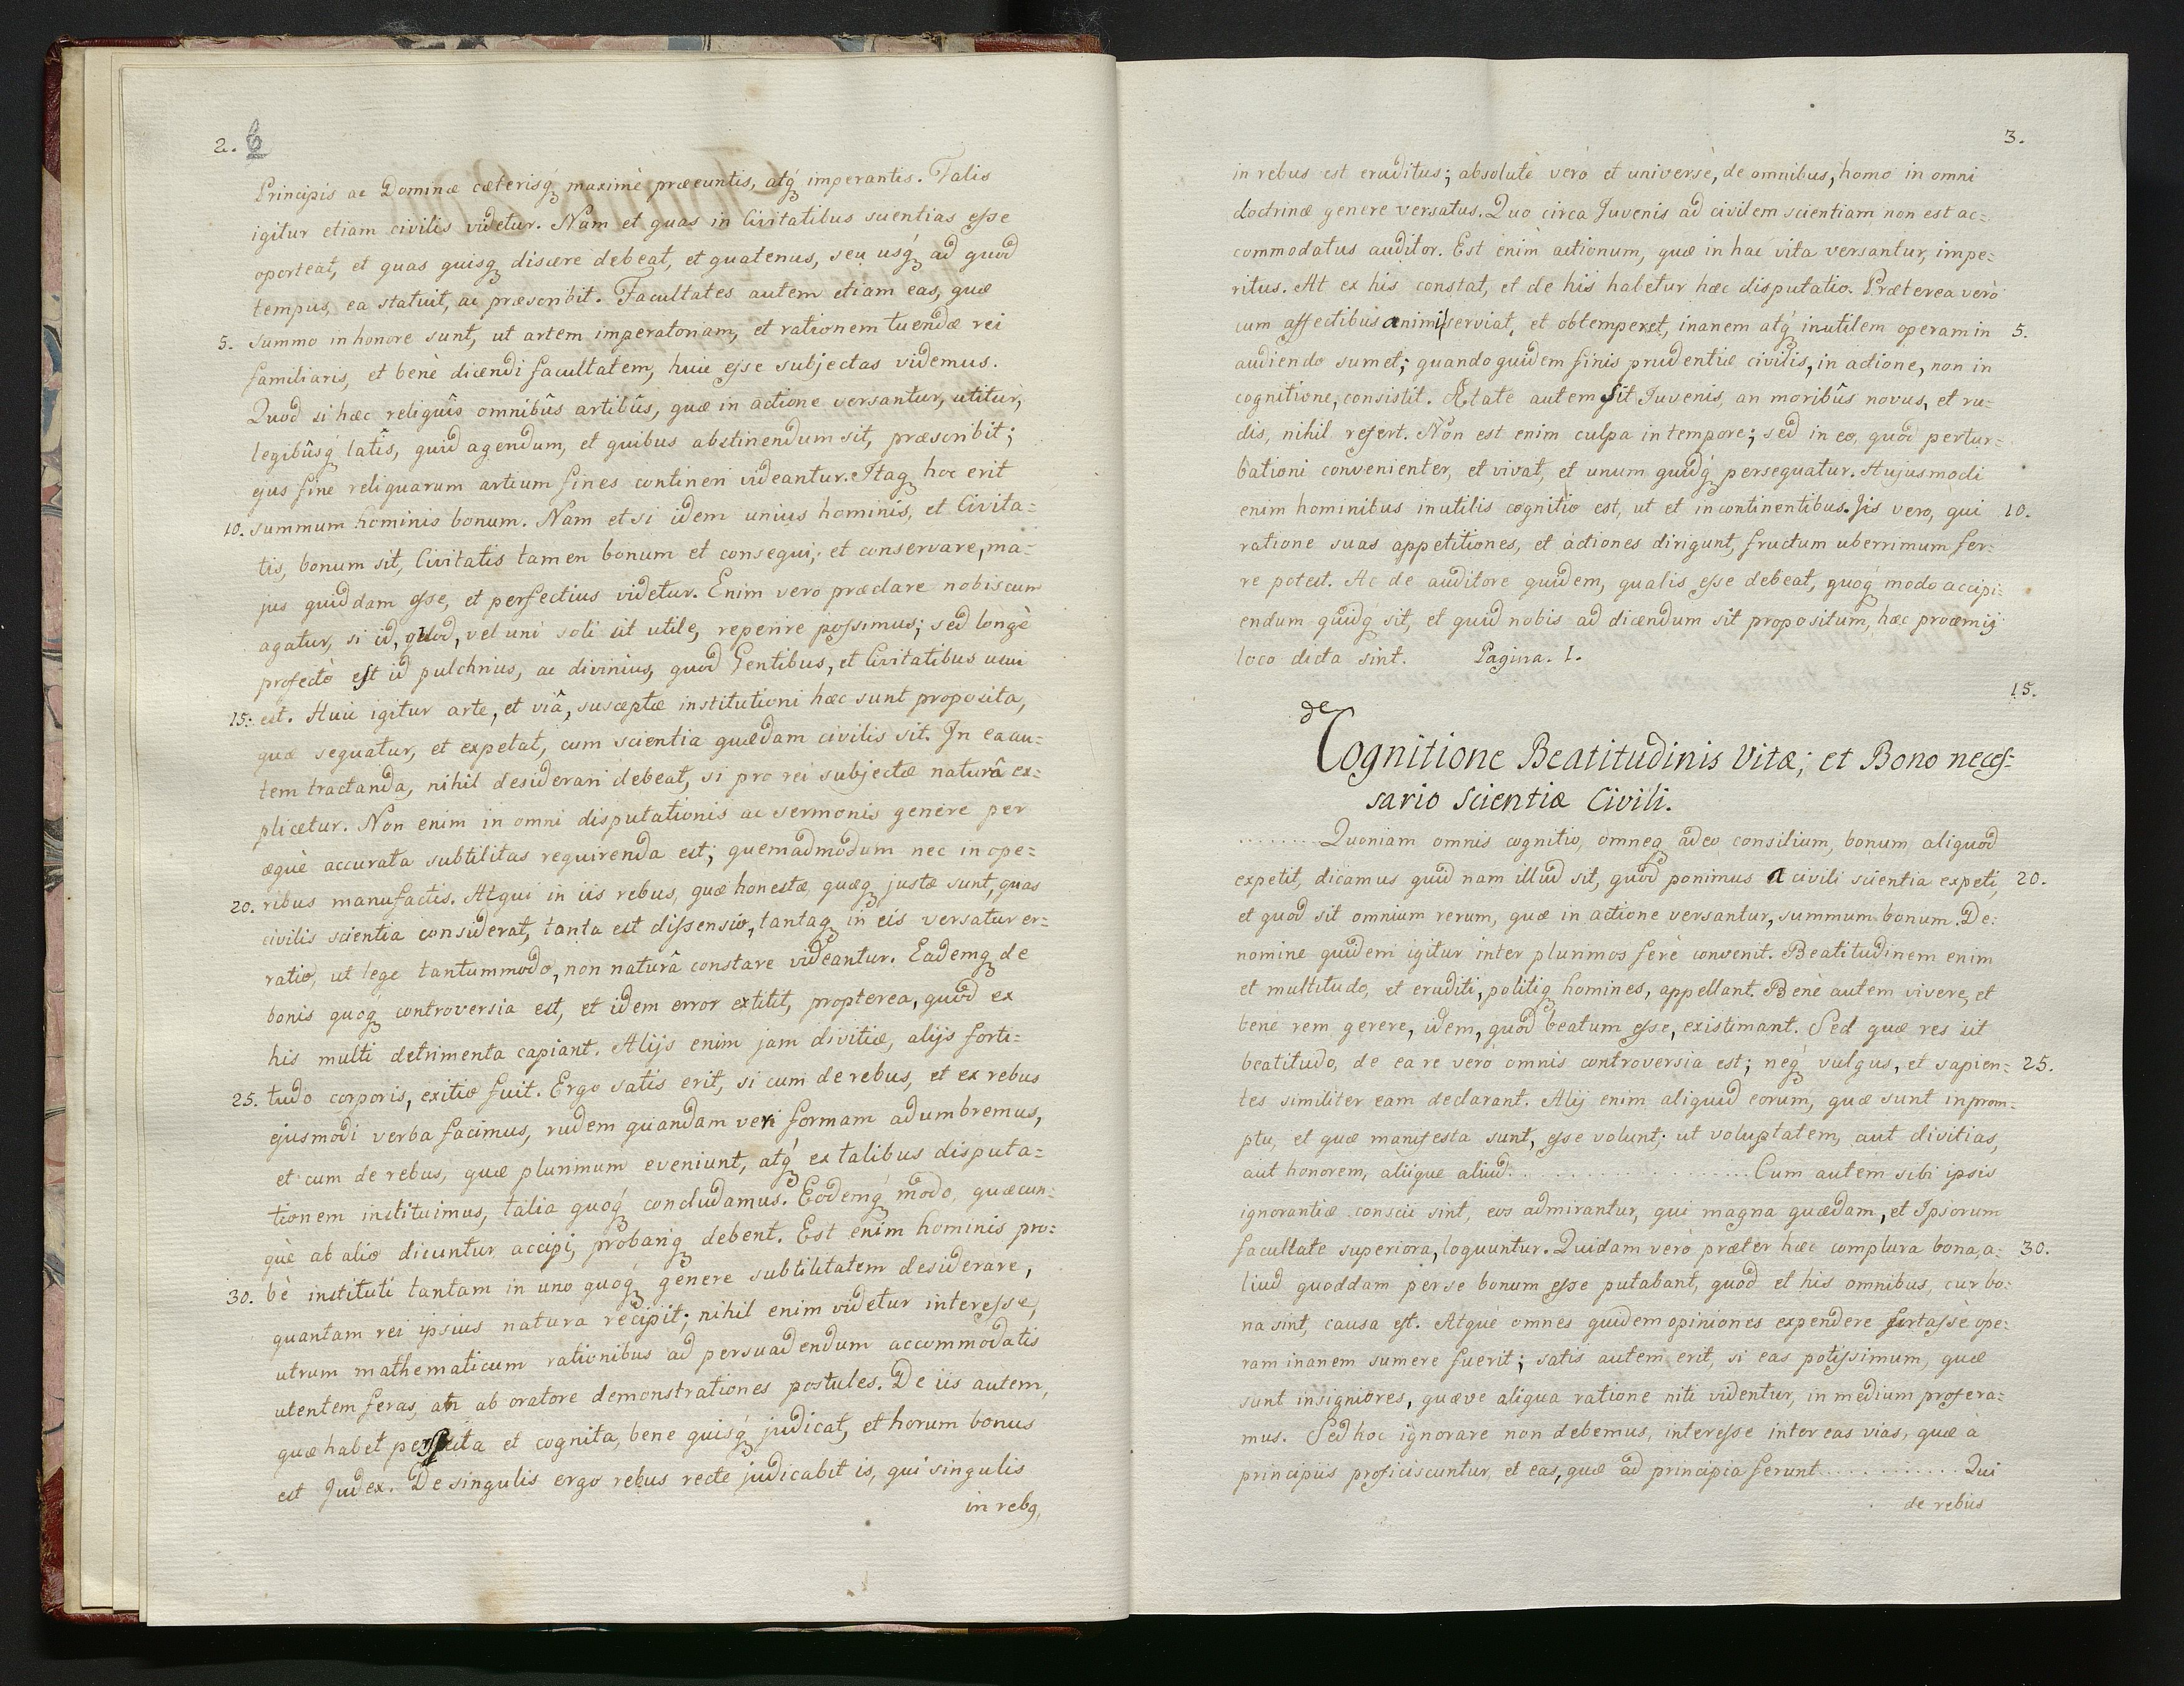 2. 6
Principis ac Dominæ cæterisq́ maximè præeuntis, atq́ imperantis. Talis
igitur etiam civilis videtur. Nam et quas in Civitatibus scientias esse
oporteat, et quas quisq discere debeat, et quatenus, seu usq́ ad quod
tempus, ea statuit, ac præscribit. Facultates autem etiam eas, quæ
5. summo in honore sunt, ut artem imperatoriam, et rationem tuendæ rei
familiaris, et benè dicendi facultatem, huic esse subjectas videmus.
Quod si hæc reliquîs omnibûs artibûs, quæ in actione versantur, utitur,
legibûsq́ latîs, quid agendum, et quibus abstinendum sit, præscribit;
ejus fine reliquarum artium fines contineri videantur. Itaq hoc erit
10. summum hominis bonum. Nam etsi idem unius hominis, et Civita=
tis, bonum sit, Civitatis tamen bonum et consequi, et conservare, ma=
jus quiddam esse, et perfectius videtur. Enim vero præclare nobiscum
agatur, si id, quod, vel uni soli sit utile, reperire possimus; sed longè
profectò est id pulchrius, ac divinius, quod Gentibus, et Civitatibus usui
15. est. Huic igitur arte, et viâ, susceptæ institutioni hæc sunt proposita,
quæ sequatur, et expetat, cum scientia quædam civilis sit. In ea au=
tem tractanda, nihil desiderari debeat, si pro rei subjectæ naturâ ex=
plicetur. Non enim in omni disputationis ac sermonis genere per
æquè accurata subtilitas requirenda est; quemadmodum nec in ope=
20. ribus manufactis. Atqui in iis rebus, quæ honestæ, quæq justæ sunt, quas
civilis scientia considerat, tanta est dissensio, tantaq in eis versatur er=
ratio, ut lege tantummodo, non naturâ constare videantur. Eademq de
bonis quoq́ controversia est, et idem error extitit, propterea, quod ex
his multi detrimenta capiant. Alijs enim jam divitiæ, alijs forti=
25. tudo corporis, exitio fuit. Ergo satis erit, si cum de rebus, et ex rebus
ejusmodi verba facimus, rudem quandam veri formam adumbremus,
et cum de rebus, quæ plurimum eveniunt, atq́ ex talibus disputa=
tionem instituimus, talia quoq́ concludamus. Eodemq́ modo, quæcun=
què ab alio dicuntur accipi, probariq debent. Est enim hominis pro=
30. bè instituti tantam in uno quoq́ genere subtilitatem desiderare,
quantam rei ipsius natura recipit; nihil enim videtur interesse,
utrum mathematicum rationibus ad persuadendum accommodatis
utentem feras, an ab oratore demonstrationes postules. De iis autem,
quæ habet et cognita, bene quisq́ judicat, et horum bonus
est Judex. De singulis ergo rebus recte judicabit is, qui singulis
in reb9,
3.
in rebus est eruditus; absolutè verò et universè, de omnibus, homo in omni
doctrinæ genere versatus. Quo circa Juvenis ad civilem scientiam non est ac=
commodatus auditor. Est enim actionum, quæ in hac vita versantur, impe=
ritus. At ex his constat, et de his habetur hæc disputatio. Præterea verò
cum affectibus animi serviat, et obtemperet, inanem atq́ inutilem operam in 5.
audiendo sumet; quandoquidem finis prudentiæ civilis, in actione, non in
cognitione, consistit. Ætate autem sit Juvenis, an moribûs novus, et ru=
dis, nihil refert. Non est enim culpa in tempore; sed in eo, quod pertur=
bationi convenienter, et vivat, et unum quidq́ persequatur. Hujusmodi
enim hominibus inutilis cognitio est, ut et incontinentibus. Iis vero, qui 10.
ratione suas appetitiones, et actiones dirigunt, fructum uberrimum fer=
re potest. Ac de auditore quidem, qualis esse debeat, quoq́ modo accipi=
endum quidq́ sit, et quid nobis ad dicendum sit propositum, hæc proœmij
loco dicta sint. Pagina. 1.
15.
de
Cognitione Beatitudinis Vitæ; et Bono neces=
sario Scientiæ Civili.
........Quoniam omnis cognitio, omneq adeo consilium, bonum aliquod
expetit, dicamus quid nam illud sit, quod ponimus a civili scientia expeti, 20.
et quod sit omnium rerum, quæ in actione versantur, summum bonum. De=
nomine quidem igitur inter plurimos ferè convenit. Beatitudinem enim
et multitudo, et eruditi, politiq homines, appellant. Benè autem vivere, et
benè rem gerere, idem, quod beatum esse, existimant. Sed quæ res sit
beatitudo, de ea re verò omnis controversia est; neq́ vulgus, et sapien= 25.
tes similiter eam declarant. Alij enim aliquid eorum, quæ sunt in prom=
ptu, et quæ manifesta sunt, esse volunt; ut voluptatem, aut divitias,
aut honorem, aliique aliud. .................... Cum autem sibi ipsis
ignorantiæ conscii sint, eos admirantur, qui magna quædam, et Ipsorum
facultate superiora, loquuntur. Quidam verò præter hæc complura bona, a= 30.
liud quoddam per se bonum esse putabant, quod et his omnibus, cur bo=
na sint, causa est. Atquè omnes quidem opiniones expendere fortassè ope=
ram inanem sumere fuerit; satis autem erit, si eas potissimum, quæ
sunt insigniores, quæve aliqua ratione niti videntur, in medium profera=
mus. Sed hoc ignorare non debemus, interesse inter eas vias, quæ à
principiis proficiscuntur, et eas, quæ ad principia ferunt........... Qui
de rebus